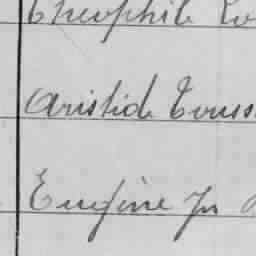 Theophile Lo
Aristide Touss
Eugène Jn